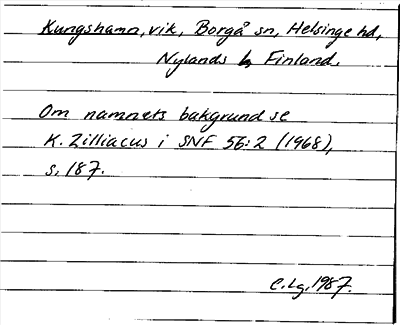 Kungshamn, vik, Borgå sn, Helsinge hd,
Nylands Finland.
Om namnets bakgrund se
K. Zilliacus i SNF 56:2 (1968),
s. 187.
C. Lg. 1987.